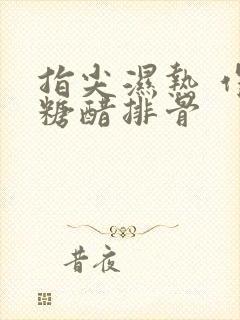 指尖濕熱
糖醋排骨
昔夜